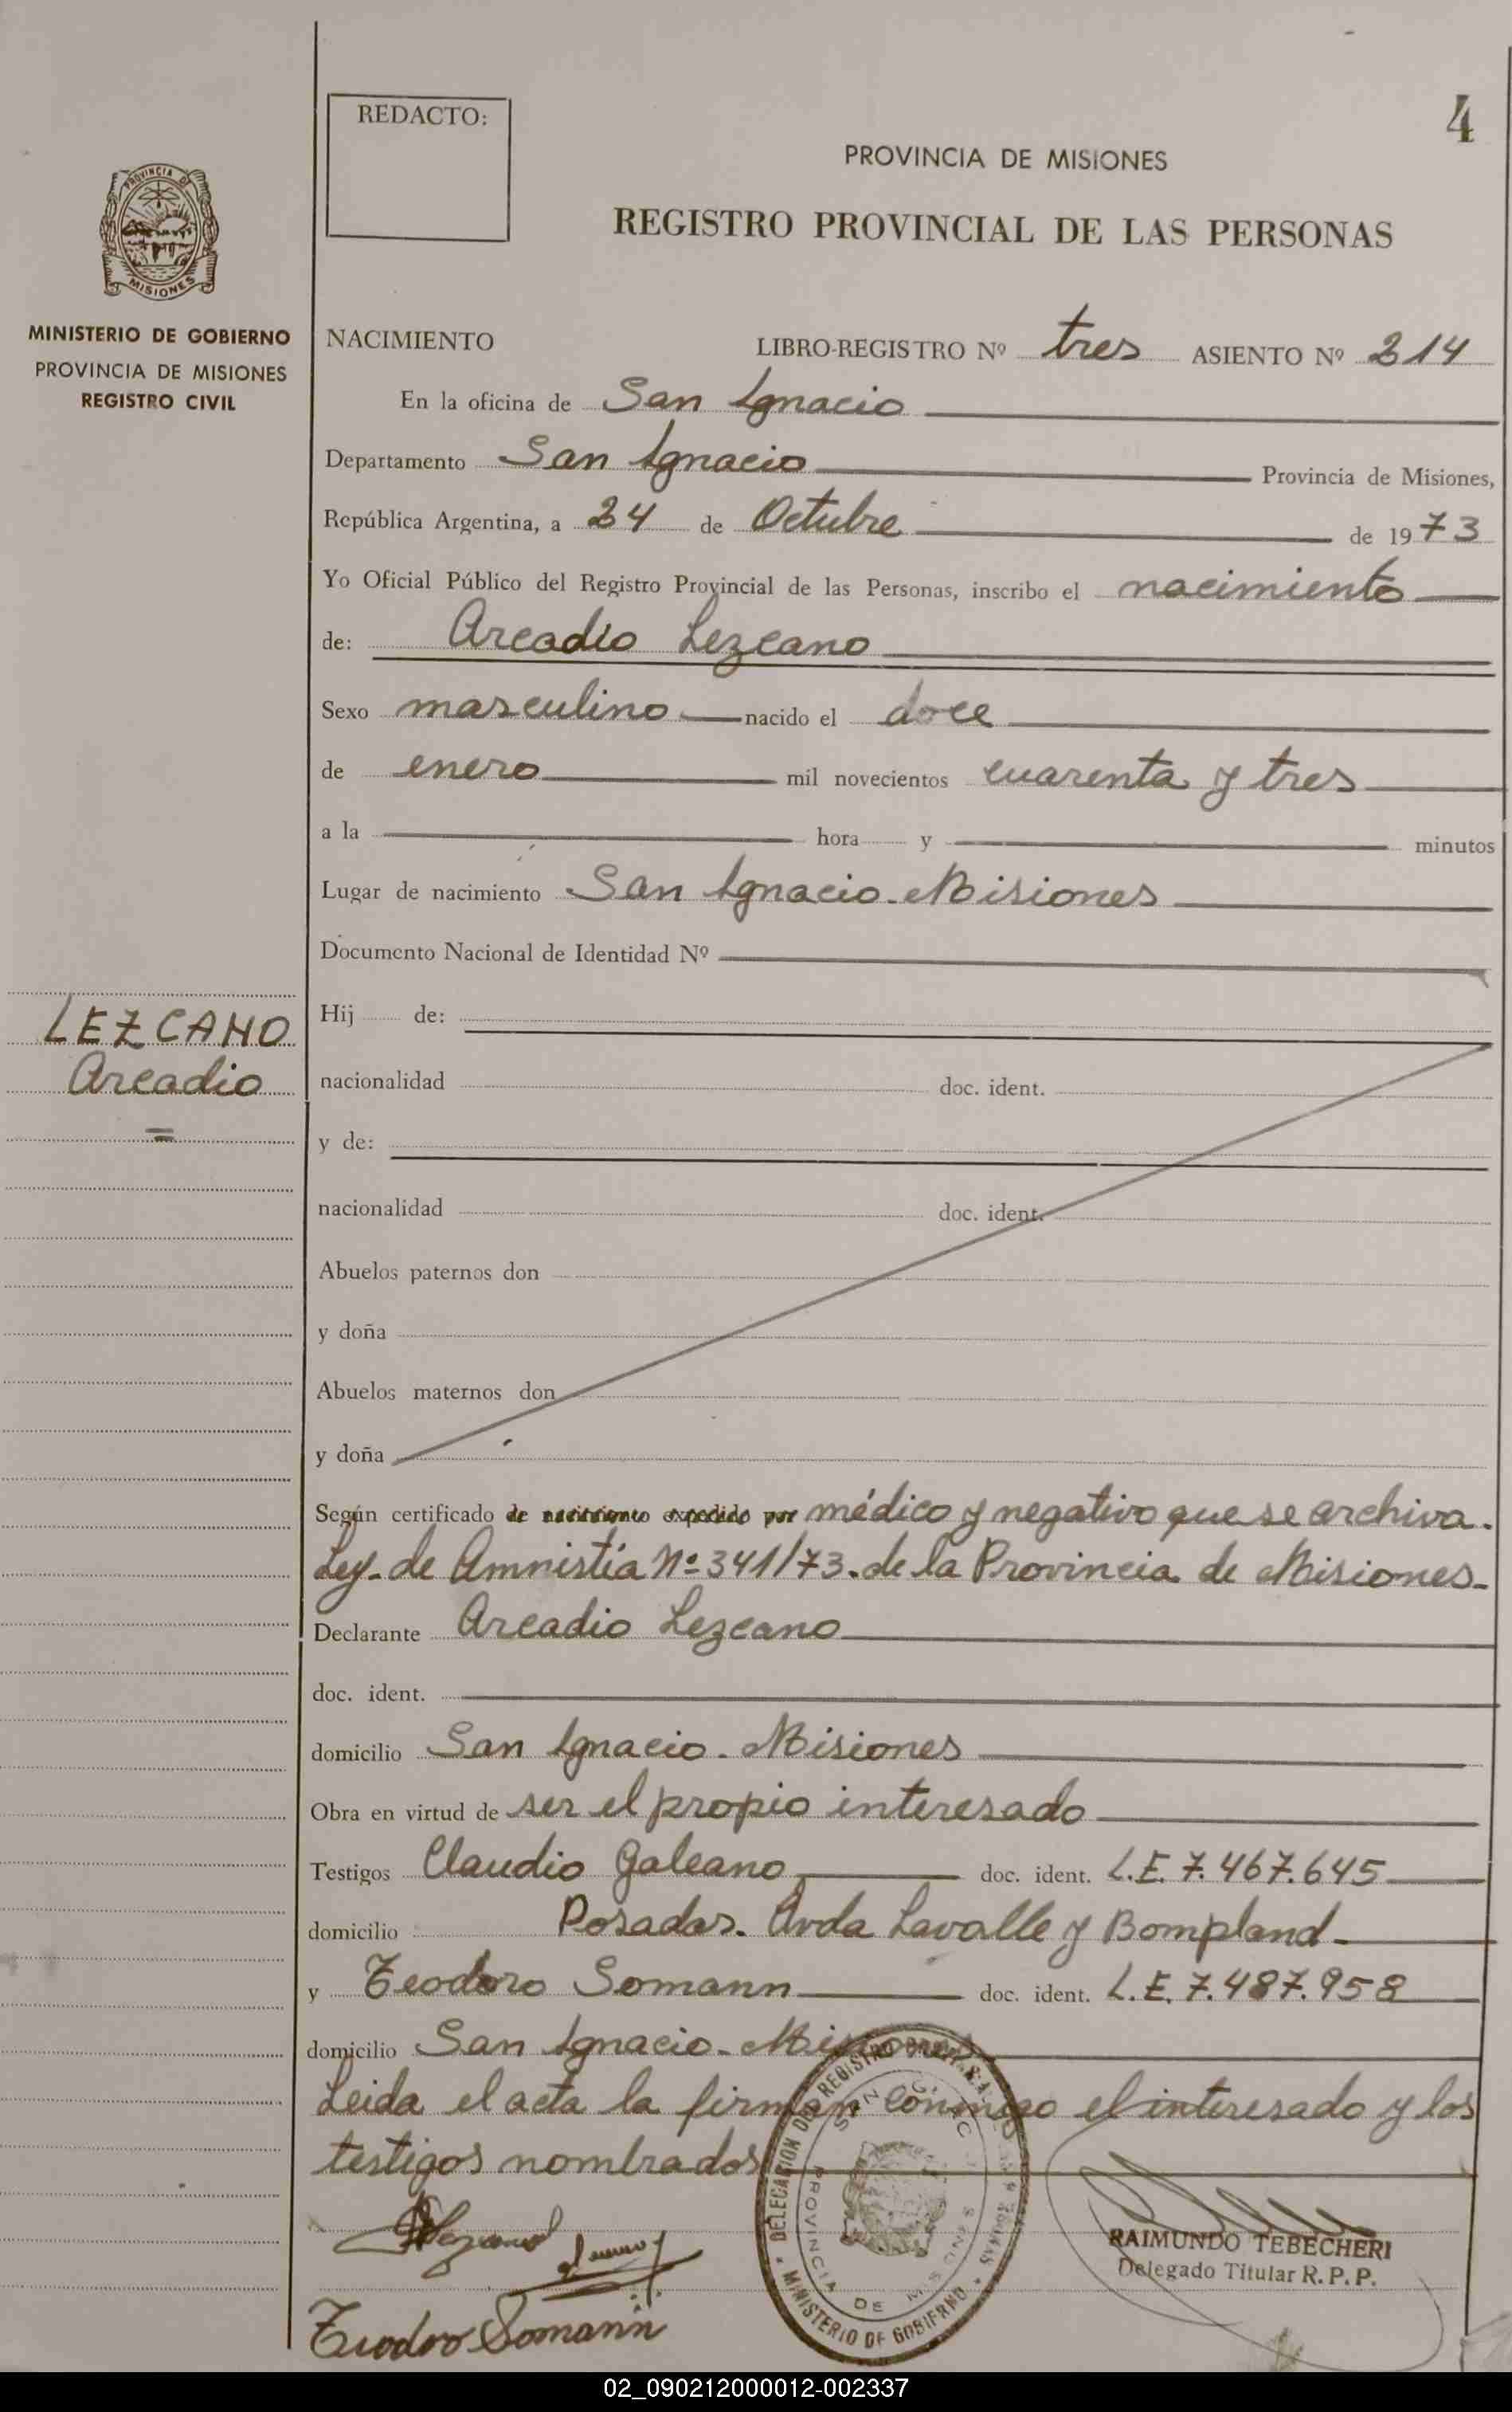 4
REDACTO:
PROVINCIA DE MISIONES
REGISTRO PROVINCIAL DE LAS PERSONAS
PROVINCIA DE
MISIONES
MINISTERIO DE GOBIERNO
PROVINCIA DE MISIONES
REGISTRO CIVIL
NACIMIENTO LIBRO-REGISTRO Nº tres ASIENTO Nº 214
En la oficina de San Ignacio
Departamento San Ignacio Provincia de Misiones,
República Argentina, a 24 de Octubre de 1973
Yo Oficial Público del Registro Provincial de las Personas, inscribo el nacimiento
de: Arcadio Lezcano
Sexo masculino nacido el doce
de enero mil novecientos cuarenta y tres
a la hora y minutos
Lugar de nacimiento San Ignacio - Misiones
Documento Nacional de Identidad Nº
LEZCANO
Arcadio
Hij de:
nacionalidad doc. ident.
y de:
nacionalidad doc. ident.
Abuelos paternos don
y doña
Abuelos maternos don
y doña
Según certificado de nacimiento expedido por médico y negativo que se archiva.
Ley de Amnistía Nº 341/73. de la Provincia de Misiones-
Declarante Arcadio Lezcano
doc. ident.
domicilio San Ignacio - Misiones
Obra en virtud de ser el propio interesado
Testigos Claudio Galeano doc. ident. L.E. 7.467.645
domicilio Posadas. Avda Lavalle y Bompland-
y Teodoro Somann doc. ident. L.E. 7.487.958
domicilio San Ignacio - Misiones
Leida el acta la firman conmigo el interesado y los
testigos nombrados
DELEGACION DEL REGISTRO
MINISTERIO DE GOBIERNO
PROVINCIA DE MISIONES
RAIMUNDO TEBECHERI
Delegado Titular R.P.P.
Teodoro Somann
02_090212000012-002337